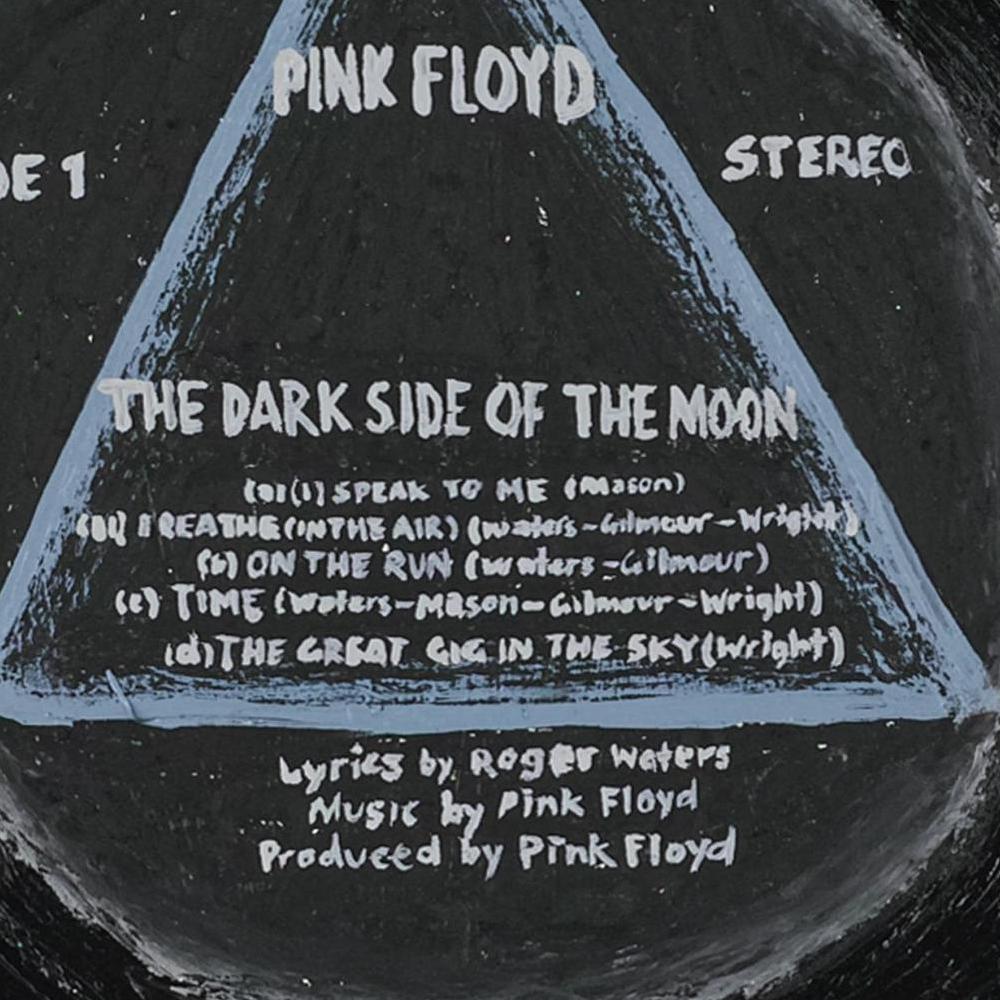 PINK FLOYD
DE 1
STEREO
THE DARK SIDE OF THE MOON
(a)(i) SPEAK TO ME (Mason)
(ii) BREATHE (IN THE AIR) (Waters-Gilmour-Wright)
(b) ON THE RUN (Waters-Gilmour)
(c) TIME (Waters-Mason-Gilmour-Wright)
(d) THE GREAT GIG IN THE SKY (Wright)
Lyrics by Roger Waters
Music by Pink Floyd
Produced by Pink Floyd